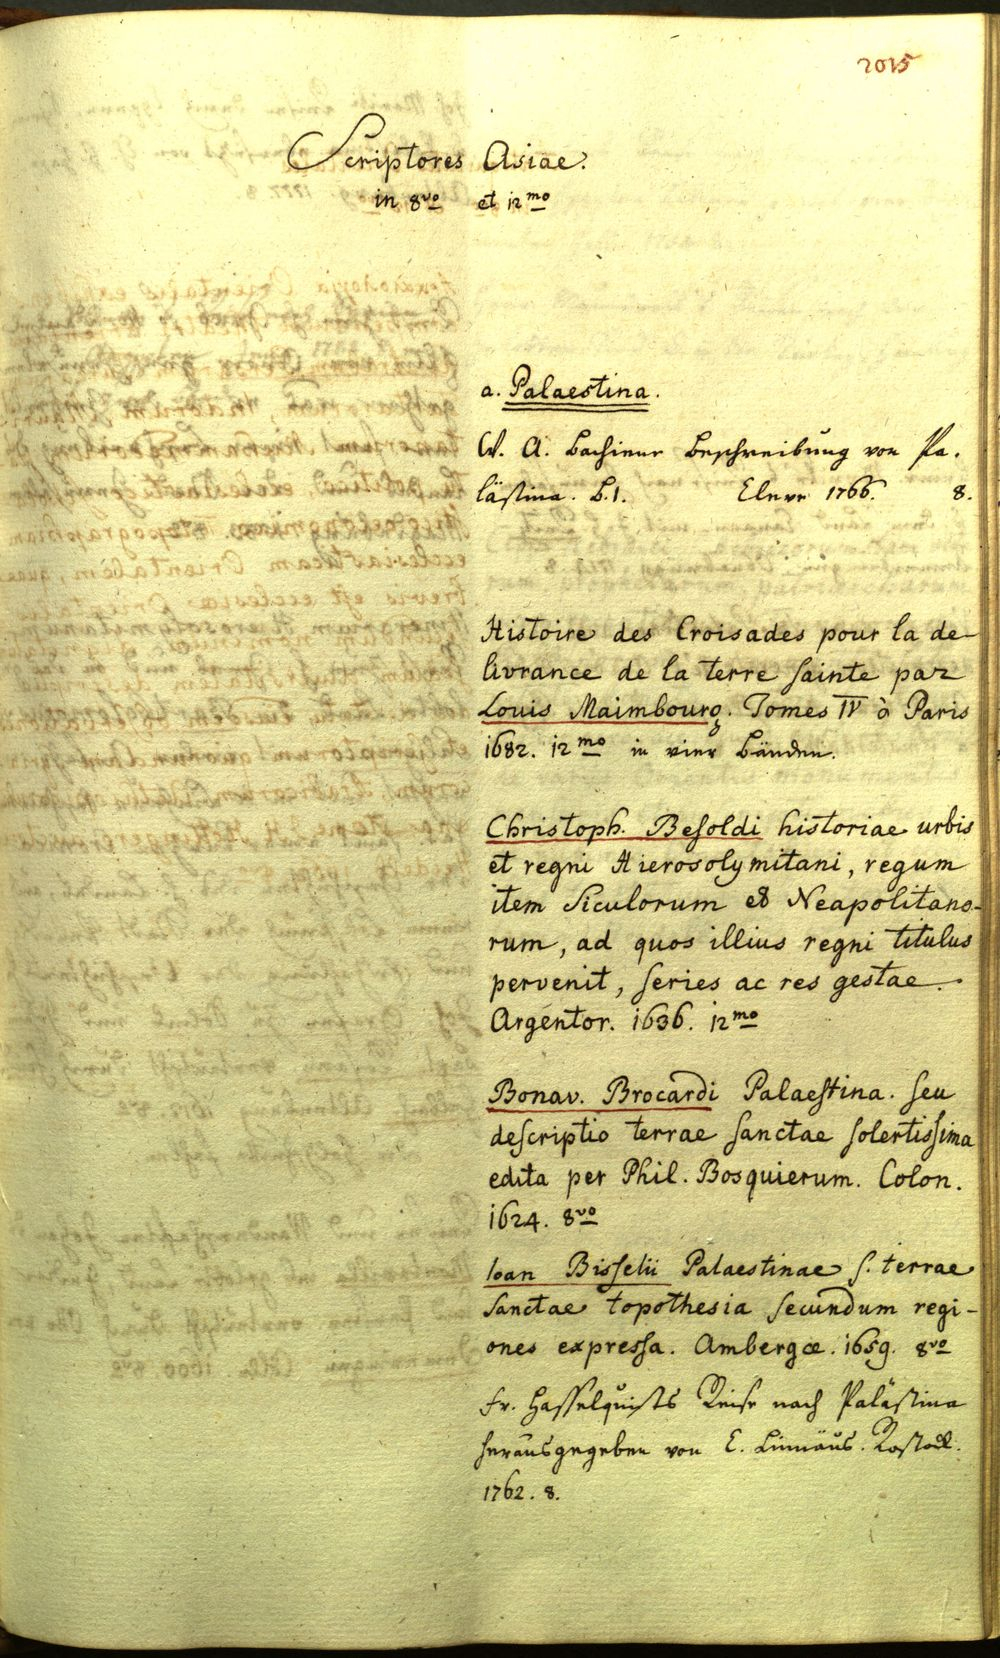 2015
Scriptores Asiae.
in 8vo et 12mo
a. Palaestina.
W. A. Bachiene Beschreibung von Pa-
lästina. B. 1. Cleve 1766. 8.
Histoire des Croisades pour la de-
livrance de la terre sainte par
Louis Maimbourg. Tomes IV à Paris
1682. 12mo in vier Bänden.
Christoph. Besoldi historiae urbis
et regni Hierosolymitani, regum
item Siculorum et Neapolitano-
rum, ad quos illius regni titulus
pervenit, series ac res gestae.
Argentor. 1636. 12mo
Bonav. Brocardi Palaestina. seu
descriptio terrae sanctae solertissima
edita per Phil. Bosquierum. Colon.
1624. 8vo
Ioan Bisselii Palaestinae s. terrae
sanctae topothesia secundum regi-
ones expressa. Ambergæ. 1659. 8vo
Fr. Hasselquists Reise nach Palästina
herausgegeben von C. Linnäus. Rostock.
1762. 8.